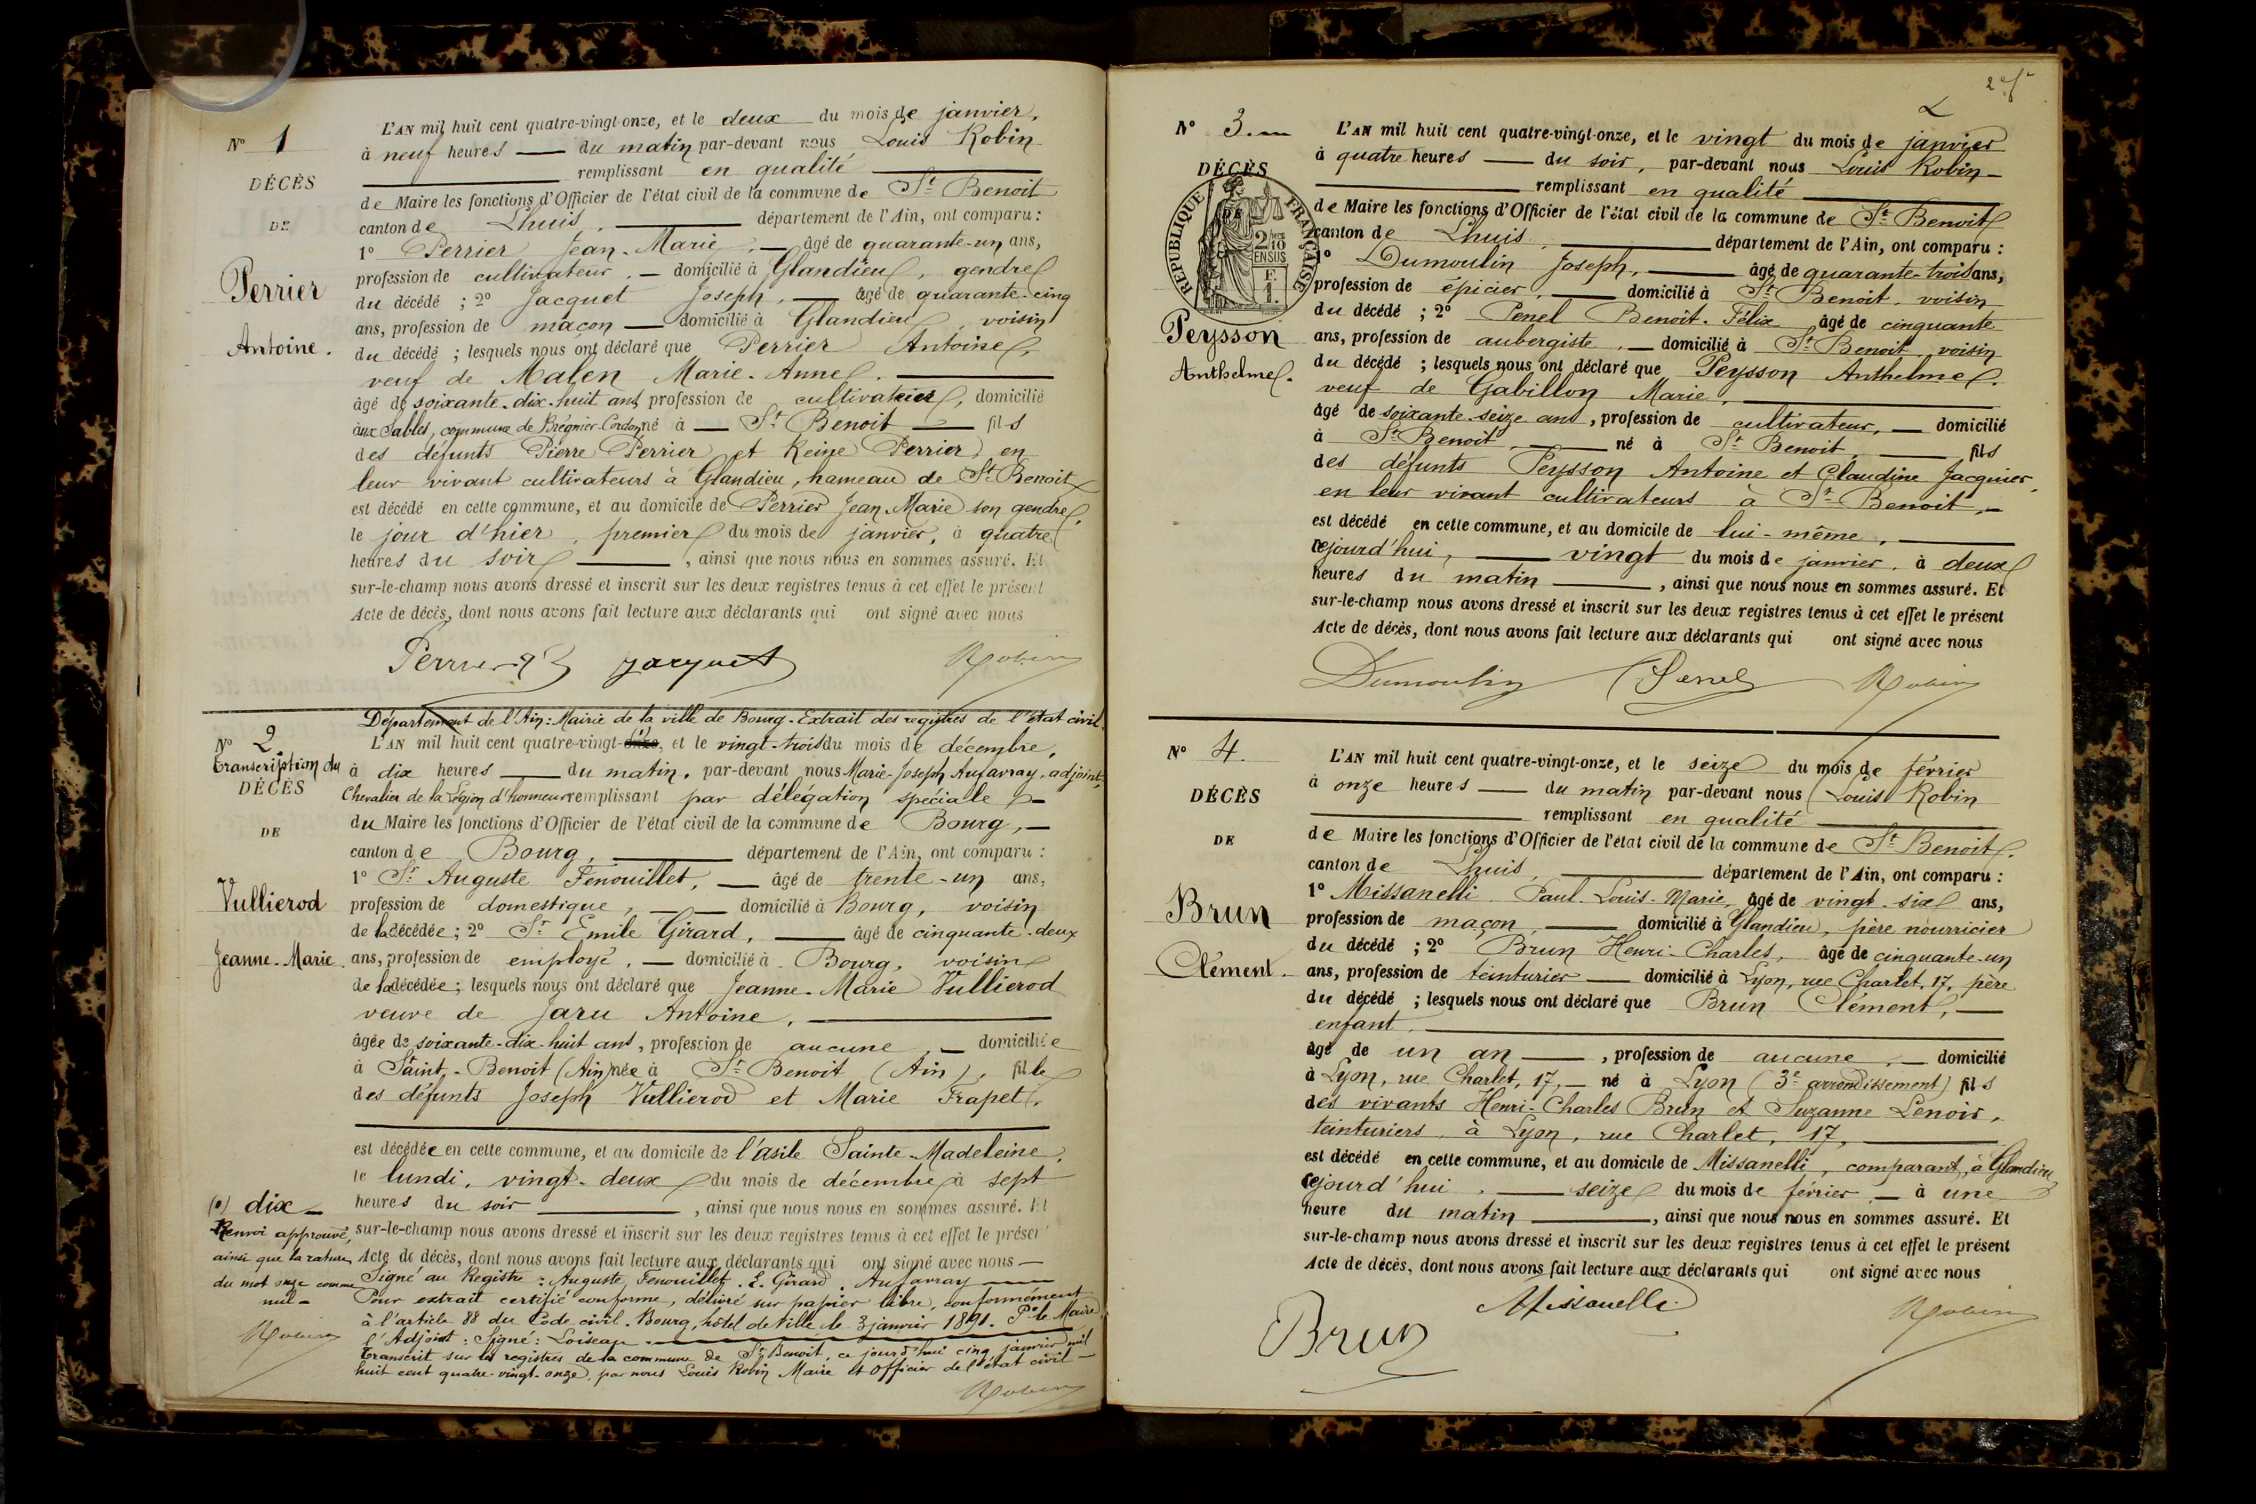 N° 1
DÉCÈS
DE
Perrier
Antoine.
L'AN mil huit cent quatre-vingt-onze, et le deux du mois de janvier,
à neuf heures du matin par-devant nous Louis Robin
remplissant en qualité
de Maire les fonctions d'Officier de l'état civil de la commune de St Benoit
canton de Lhuis, département de l'Ain, ont comparu :
1° Perrier Jean-Marie, âgé de quarante-un ans,
profession de cultivateur, domicilié à Glandieu, gendre
du décédé ; 2° Jacquet Joseph, âgé de quarante-cinq
ans, profession de maçon domicilié à Glandieu, voisin
du décédé ; lesquels nous ont déclaré que Perrier Antoine,
veuf de Malen Marie-Anne,
âgé de soixante-dix-huit ans, profession de cultivateur, domicilié
aux Sables, commune de Brégnier-Cordon né à St Benoit fils
des défunts Pierre Perrier et Reine Perrier en
leur vivant cultivateurs à Glandieu, hameau de St Benoit
est décédé en cette commune, et au domicile de Perrier Jean-Marie son gendre,
le jour d'hier, premier du mois de janvier, à quatre
heures du soir, ainsi que nous nous en sommes assuré. Et
sur-le-champ nous avons dressé et inscrit sur les deux registres tenus à cet effet le présent
Acte de décès, dont nous avons fait lecture aux déclarants qui ont signé avec nous
Perrier Jacquet Robin
N° 2
Transcription du
DÉCÈS
DE
Vullierod
Jeanne-Marie.
Département de l'Ain : Mairie de la ville de Bourg - Extrait des registres de l'état civil.
L'AN mil huit cent quatre-vingt-onze, et le vingt-trois du mois de décembre,
à dix heures du matin, par-devant nous Marie-Joseph Aufavray, adjoint,
Chevalier de la Légion d'honneur remplissant par délégation spéciale
du Maire les fonctions d'Officier de l'état civil de la commune de Bourg,
canton de Bourg, département de l'Ain, ont comparu :
1° Sr Auguste Fenouillet, âgé de trente-un ans,
profession de domestique, domicilié à Bourg, voisin
de la décédée ; 2° Sr Emile Girard, âgé de cinquante-deux
ans, profession de employé, domicilié à Bourg, voisin
de la décédée ; lesquels nous ont déclaré que Jeanne-Marie Vullierod
veuve de Jaru Antoine,
âgée de soixante-dix-huit ans, profession de aucune, domiciliée
à Saint-Benoit (Ain) née à St Benoit (Ain), fille
des défunts Joseph Vullierod et Marie Frapet,
est décédée en cette commune, et au domicile de l'asile Sainte-Madeleine,
le lundi, vingt-deux du mois de décembre à sept
heures du soir, ainsi que nous nous en sommes assuré. Et
sur-le-champ nous avons dressé et inscrit sur les deux registres tenus à cet effet le présent
Acte de décès, dont nous avons fait lecture aux déclarants qui ont signé avec nous
Signé au Registre : Auguste Fenouillet. E. Girard. Aufavray
Pour extrait certifié conforme, délivré sur papier libre, conformément
à l'article 88 du Code civil. Bourg, hôtel de Ville le 3 janvier 1891. Pr le Maire,
l'Adjoint : Signé : Loiseau.
Transcrit sur les registres de la commune de St Benoit, ce jourd'hui cinq janvier mil
huit cent quatre-vingt-onze, par nous Louis Robin Maire et Officier de l'état civil
Robin
(1) dix
Renvoi approuvé,
ainsi que la rature
du mot onze comme
nul
Robin
2
N° 3.
DÉCÈS
DE
RÉPUBLIQUE FRANÇAISE
2/10 EN SUS
F. 1.
Peysson
Anthelme.
L'AN mil huit cent quatre-vingt-onze, et le vingt du mois de janvier
à quatre heures du soir, par-devant nous Louis Robin
remplissant en qualité
de Maire les fonctions d'Officier de l'état civil de la commune de St Benoit
canton de Lhuis, département de l'Ain, ont comparu :
1° Dumoulin Joseph, âgé de quarante-trois ans,
profession de épicier, domicilié à St Benoit, voisin
du décédé ; 2° Penel Benoît-Félix âgé de cinquante
ans, profession de aubergiste, domicilié à St Benoit voisin
du décédé ; lesquels nous ont déclaré que Peysson Anthelme,
veuf de Gabillon Marie,
âgé de soixante-seize ans, profession de cultivateur, domicilié
à St Benoit, né à St Benoit, fils
des défunts Peysson Antoine et Claudine Jacquier,
en leur vivant cultivateurs à St Benoit,
est décédé en cette commune, et au domicile de lui-même,
cejourd'hui, vingt du mois de janvier, à deux
heures du matin, ainsi que nous nous en sommes assuré. Et
sur-le-champ nous avons dressé et inscrit sur les deux registres tenus à cet effet le présent
Acte de décès, dont nous avons fait lecture aux déclarants qui ont signé avec nous
Dumoulin Penel Robin
N° 4.
DÉCÈS
DE
Brun
Clément.
L'AN mil huit cent quatre-vingt-onze, et le seize du mois de février
à onze heures du matin par-devant nous Louis Robin
remplissant en qualité
de Maire les fonctions d'Officier de l'état civil de la commune de St Benoit,
canton de Lhuis, département de l'Ain, ont comparu :
1° Missanelli Paul-Louis-Marie, âgé de vingt-six ans,
profession de maçon, domicilié à Glandieu, père nourricier
du décédé ; 2° Brun Henri-Charles, âgé de cinquante-un
ans, profession de teinturier domicilié à Lyon, rue Charlet, 17, père
du décédé ; lesquels nous ont déclaré que Brun Clément,
enfant,
âgé de un an, profession de aucune, domicilié
à Lyon, rue Charlet, 17, né à Lyon (3e arrondissement) fils
des vivants Henri-Charles Brun et Suzanne Lenoir,
teinturiers, à Lyon, rue Charlet, 17,
est décédé en cette commune, et au domicile de Missanelli, comparant, à Glandieu
cejourd'hui, seize du mois de février à une
heure du matin, ainsi que nous nous en sommes assuré. Et
sur-le-champ nous avons dressé et inscrit sur les deux registres tenus à cet effet le présent
Acte de décès, dont nous avons fait lecture aux déclarants qui ont signé avec nous
Brun Missanelli Robin